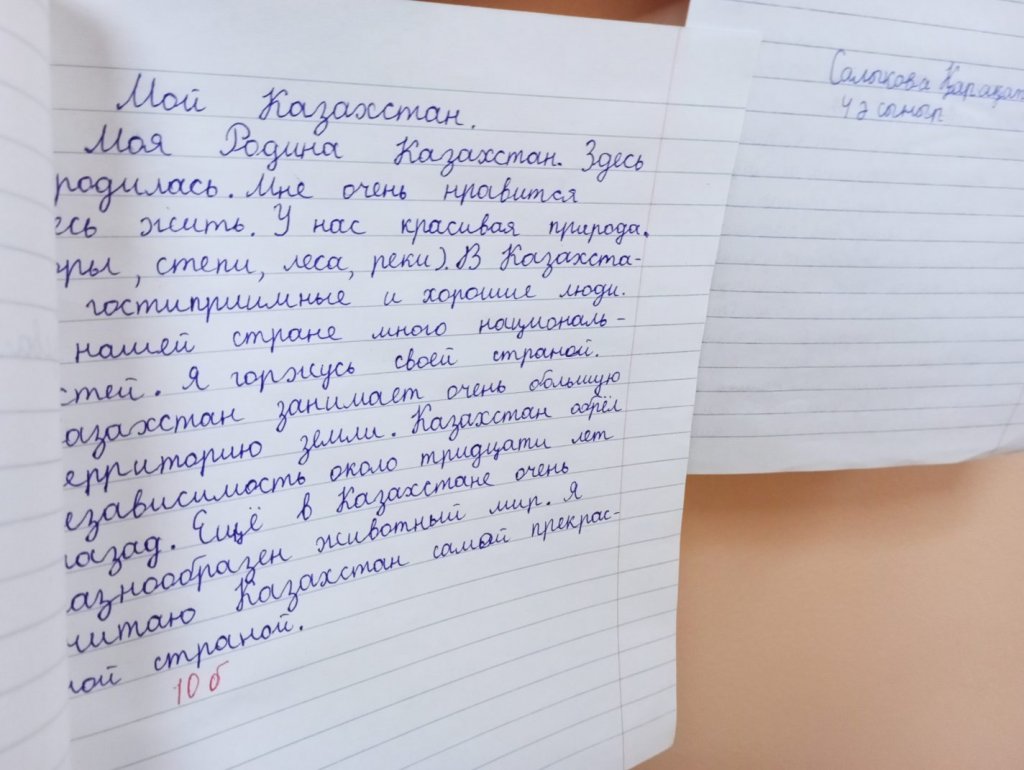 Мой Казахстан.
Моя Родина Казахстан. Здесь
родилась. Мне очень нравится
есь жить. У нас красивая природа.
оры, степи, леса, реки). В Казахста-
гостиприимные и хорошие люди.
нашей стране много националь-
стей. Я горжусь своей страной.
азахстан занимает очень большую
ерриторию земли. Казахстан обрёл
езависимость около тридцати лет
назад. Ещё в Казахстане очень
азнообразен животный мир. Я
читаю Казахстан самой прекрас-
ной страной.
10 б
Салыкова Қарақат
4 ә сынып